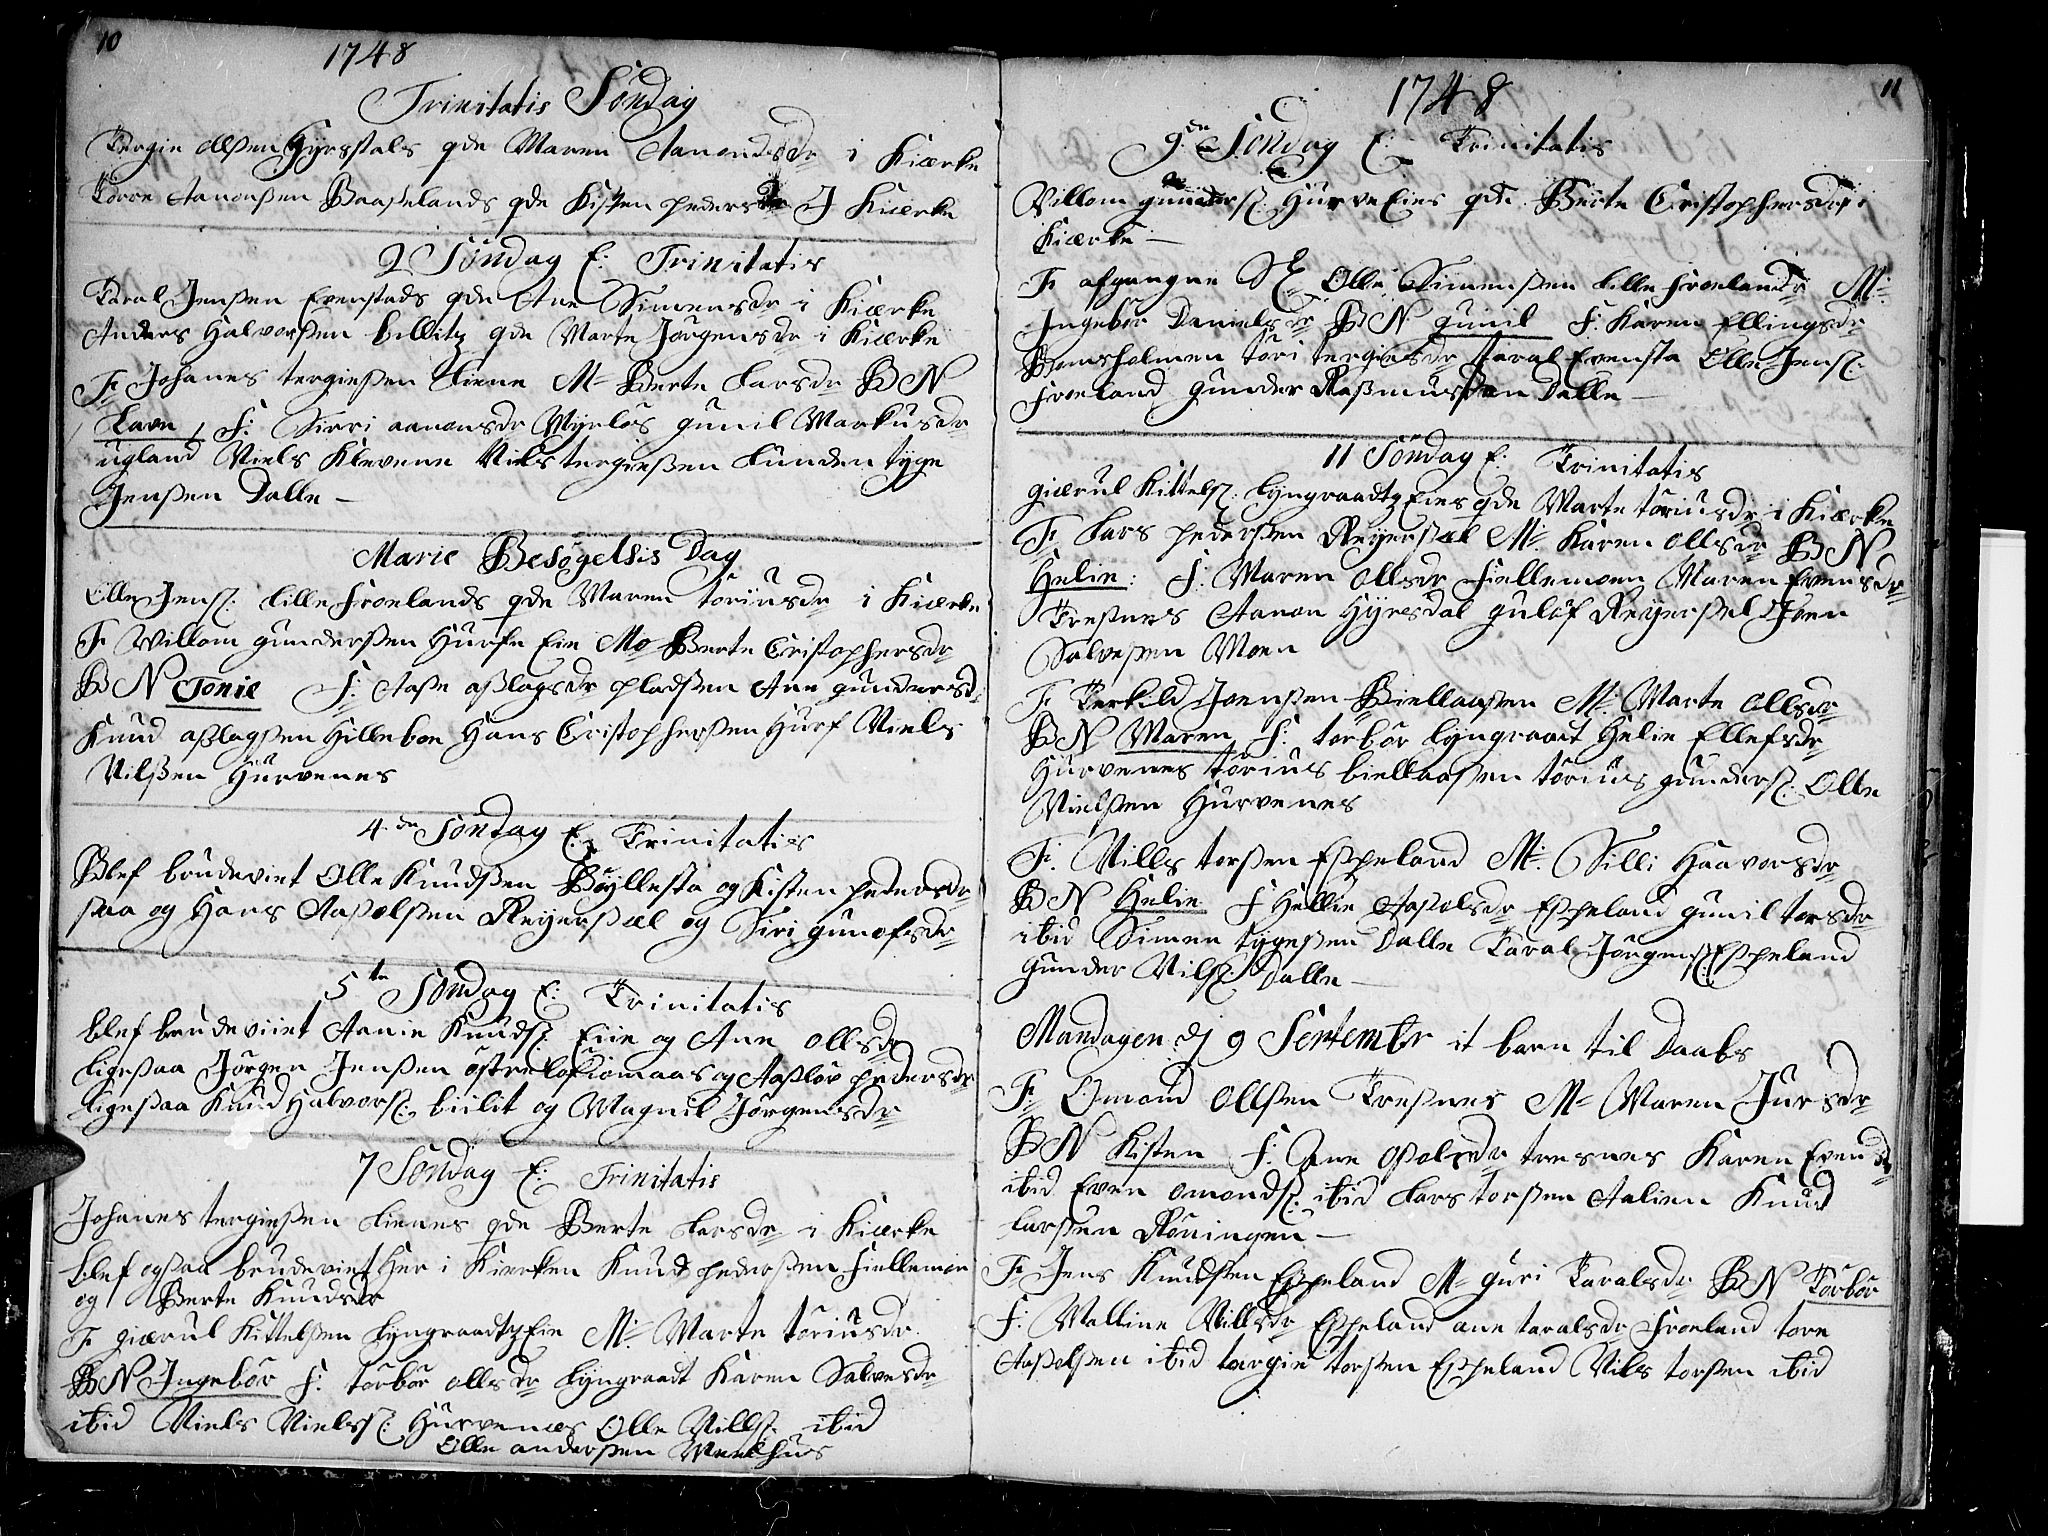 10
1748
Trinitatis Söndag
Tergie olsen Hyrstals qde Maren Aanondsdr i Kierke
Torre Aanonsen Baaselands qde Kisten pedersdr J Kierke
2 Söndag E: Trinitatis
Taral Jensen Evenstads qde Ane Simensdr i Kierke
Anders Halvorsen billitz qde Marte Jörgensdr i Kierke
F Johanes tergiesen Liene M Berte Larsdr B N
Lave F: Sirri aanonsdr Myrlös gunil Markusdr
ugland Niels Klevene Nils tergiesen Lunden tyge
Jensen Dalle
Marie Besøgelsis Dag
Olle Jens: Lille Froelands qde Maren toriusdr i Kierke
F Willom gundersen Hurfe Eie Mo Berte Cristophersdr
B N Tonie F: Aase aslagsdr pladsen Ane gundersd:
Knud aslagsen Hilleboe Hans Cristophersen Hurf Niels
Nilsen Hurvenes
4de Söndag E: Trinitatis
Blef brudeviet Olle Knudsen Böyllesta og Kisten pedersdr
saa og Hans Aasolsen Reyersæl og Siri gunofsdr
5te Söndag E: Trinitatis
blef brudeviiet Aanie Knuds: Eiie og Ane ollsdr
ligesaa Jörgen Jensen östre og Aaslöv pedersdr
ligesaa Knud Halvors: biilit og Magnil Jörgensdr
7 Söndag E: Trinitatis
Johanes tergiesen Lienes qde Berte Larsdr i Kierke
blef ogsaa brudeviet her i Kierken Knud pedersen Fiellemoen
og Berte Knudsdr
F gierul Kittelsen Lyngraadtz Eie M: Marte toriusdr
B N Ingebör F: törbör ollsdr Lyngraadt Karen Salvesdr
ibid Niels Niels: Hurvenæs Olle Nills: ibid
Olle andersen Mælhus
11
1748
9de Söndag E: Trinitatis
Villom gunders: Hurve Eies qde Berte Cristophersdr i
Kierke
F afgangne S Olle Simensen Lille Froeland M:
Ingebör Danielsdr B N gunil F: Karen Ellingsdr
Bomsholmen töri tergiesdr taral Evensta Olle Jens:
Froeland gunder Rasmussen Dalle
11 Söndag E: Trinitatis
gierul Kittels: Lyngraadtz Eies qde Marte toriusdr i Kierke
F Lars pedersen Reyersæl M: Karen ollsdr B N
Helie: F: Maren ollsdr Fiellemoen Maren Evensdr
Tresnes Aanon Hyresdal gulöf Reyersel Iven
Salvesen Moen
F Terkild Joensen Biellaasen M: Marte ollsdr
B N Maren F: törbör Lyngraadt Helie Ellefsdr
Hurvenes törius biellaasen törius gunders: Olle
Nielsen Hurvenes
F: Nills torsen Espeland M: Silli Haavorsdr
B N Helie F Hellie Aasolsdr Espeland gunil torsdr
ibid Simen tygesen Dalle Taral Jörgens: Espeland
gunder Nils: Dalle
Mandagen dj 9 Sentembr it barn til Daabs
F Omond ollsen Tresnes M Maren Jursdr
B N Kisten F: Ane osolsdr tresnes Karen Evensdr
ibid Even omonds: ibid Lars torsen Aalien Knud
Larsen Röningen
F Jens Knudsen Espeland M guri Taralsdr B N Törbör
F: Malline Nillsdr Espeland ane taralsdr Froeland tore
Aasolsen ibid tærgie torsen Espeland Nils torsen ibid